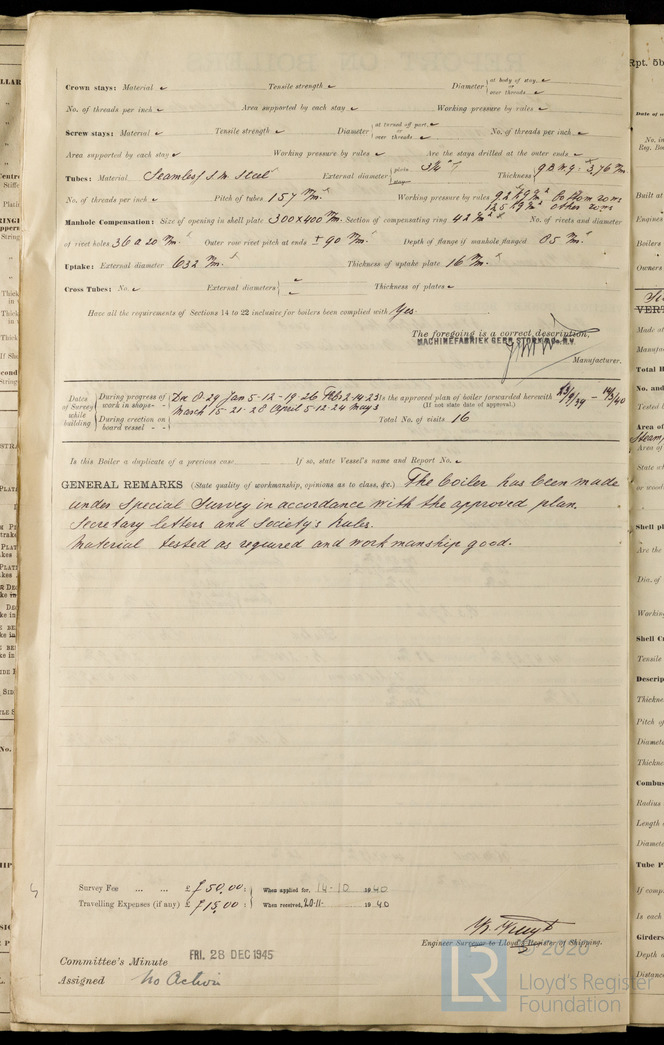 Crown stays: Material ✓ Tensile strength ✓ Diameter at body of stay, ✓ or over threads ✓
No. of threads per inch ✓ Area supported by each stay ✓ Working pressure by rules ✓
Screw stays: Material ✓ Tensile strength ✓ Diameter at turned off part, ✓ or over threads ✓ No. of threads per inch ✓
Area supported by each stay ✓ Working pressure by rules ✓ Are the stays drilled at the outer ends ✓
Tubes: Material Seamless S.M. Steel External diameter plain 3¼" Thickness 9 B.W.G. 3,76 m/m.
No. of threads per inch ✓ Pitch of tubes 157 m/m. Working pressure by rules 9.2 kg/m² bottom rows
12.5 kg/m² other rows
Manhole Compensation: Size of opening in shell plate 300x400 m/m. Section of compensating ring 42 No. of rivets and diameter
of rivet holes 36 a 20 m/m. Outer row rivet pitch at ends ± 90 m/m. Depth of flange if manhole flanged 85 m/m.
Uptake: External diameter 632 m/m. Thickness of uptake plate 16 m/m.
Cross Tubes: No. ✓ External diameters ✓ Thickness of plates ✓
Have all the requirements of Sections 14 to 22 inclusive for boilers been complied with Yes
The foregoing is a correct description,
MACHINEFABRIEK GEBR. STORK & Co. N.V.
Manufacturer.
Dates of Survey while building
During progress of work in shops - - Dec 8-29 Jan 5-12-19-26 Feb 2-14-23
March 15-21-28 April 5-12-24 May 3
During erection on board vessel - -
Is the approved plan of boiler forwarded herewith 23/9/39 - 14/3/40
(If not state date of approval.)
Total No. of visits 16
Is this Boiler a duplicate of a previous case If so, state Vessel's name and Report No. ✓
GENERAL REMARKS (State quality of workmanship, opinions as to class, &c.) The boiler has been made
under Special Survey in accordance with the approved plan.
Secretary letters and Society's Rules.
Material tested as required and workmanship good.
Survey Fee ... ... £ f 50.00: When applied for, 14-10 1940
Travelling Expenses (if any) £ f 15.00: When received, 20-11- 1940
Engineer Surveyor to Lloyd's Register of Shipping.
Committee's Minute FRI. 28 DEC 1945
Assigned No Action
© 2020
LR
Lloyd's Register
Foundation
Rpt. 5b